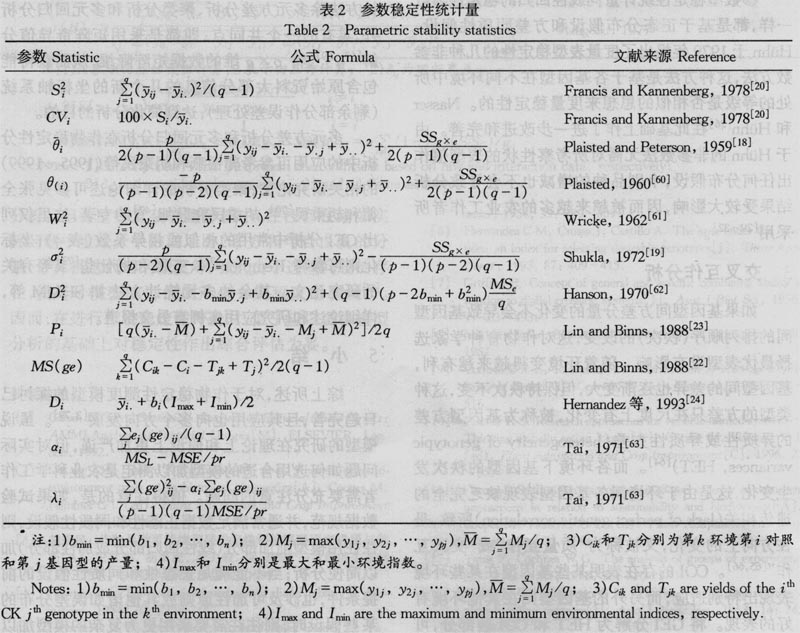 表2 参数稳定性统计量
Table 2 Parametric stability statistics
参数 Statistic 公式 Formula 文献来源 Reference
S_i^2 \sum_{j=1}^{q}(y_{ij}-\bar{y}_{i.})^2/(q-1) Francis and Kannenberg, 1978[20]
CV_i 100×S_i/\bar{y}_{i.} Francis and Kannenberg, 1978[20]
\bar{θ}_i \frac{p}{2(p-1)(q-1)}\sum_{j=1}^{q}(y_{ij}-\bar{y}_{i.}-\bar{y}_{.j}+\bar{y}_{..})^2+\frac{SS_{g×e}}{2(p-1)(q-1)} Plaisted and Peterson, 1959[18]
θ_{(i)} \frac{-p}{(p-1)(p-2)(q-1)}\sum_{j=1}^{q}(y_{ij}-\bar{y}_{i.}-\bar{y}_{.j}+\bar{y}_{..})^2+\frac{SS_{g×e}}{2(p-1)(q-1)} Plaisted, 1960[60]
W_i^2 \sum_{j=1}^{q}(y_{ij}-\bar{y}_{i.}-\bar{y}_{.j}+\bar{y}_{..})^2 Wricke, 1962[61]
σ_i^2 \frac{p}{(p-1)(p-2)(q-1)}\sum_{j=1}^{q}(y_{ij}-\bar{y}_{i.}-\bar{y}_{.j}+\bar{y}_{..})^2-\frac{SS_{g×e}}{(p-1)(p-2)(q-1)} Shukla, 1972[19]
D_i^2 \sum_{j=1}^{q}(y_{ij}-\bar{y}_{i.}-b_{min}\bar{y}_{.j}+b_{min}\bar{y}_{..})^2+(q-1)(p-2b_{min}+b_{min}^2)\frac{MS_e}{q} Hanson, 1970[62]
P_i [q(\bar{y}_{i.}-\bar{M})+\sum_{j=1}^{q}(y_{ij}-\bar{y}_{i.}-M_j+\bar{M})^2]/2q Lin and Binns, 1988[23]
MS(ge) \sum_{k=1}^{q}(C_{ik}-C_i-T_{jk}+T_j)^2/2(q-1) Lin and Binns, 1988[22]
D_i \bar{y}_{i.}+b_i(I_{max}+I_{min})/2 Hernandez 等, 1993[24]
α_i \frac{\sum e_j(ge)_{ij}/(q-1)}{MS_L-MSE/pr} Tai, 1971[63]
λ_i \frac{\sum_j(ge)_{ij}^2-α_i\sum_j e_j(ge)_{ij}}{(p-1)(q-1)MSE/pr} Tai, 1971[63]
注:1)b_{min}=min(b_1, b_2, ⋯, b_n); 2)M_j=max(y_{1j}, y_{2j}, ⋯, y_{pj}), \bar{M}=\sum_{j=1}^{q}M_j/q; 3)C_{ik}和T_{jk}分别为第k环境第i对照
和第j基因型的产量; 4)I_{max}和I_{min}分别是最大和最小环境指数。
Notes: 1)b_{min}=min(b_1, b_2, ⋯, b_n); 2)M_j=max(y_{1j}, y_{2j}, ⋯, y_{pj}), \bar{M}=\sum_{j=1}^{q}M_j/q; 3)C_{ik} and T_{jk} are yields of the i^{th}
CK j^{th} genotype in the k^{th} environment; 4)I_{max} and I_{min} are the maximum and minimum environmental indices, respectively.